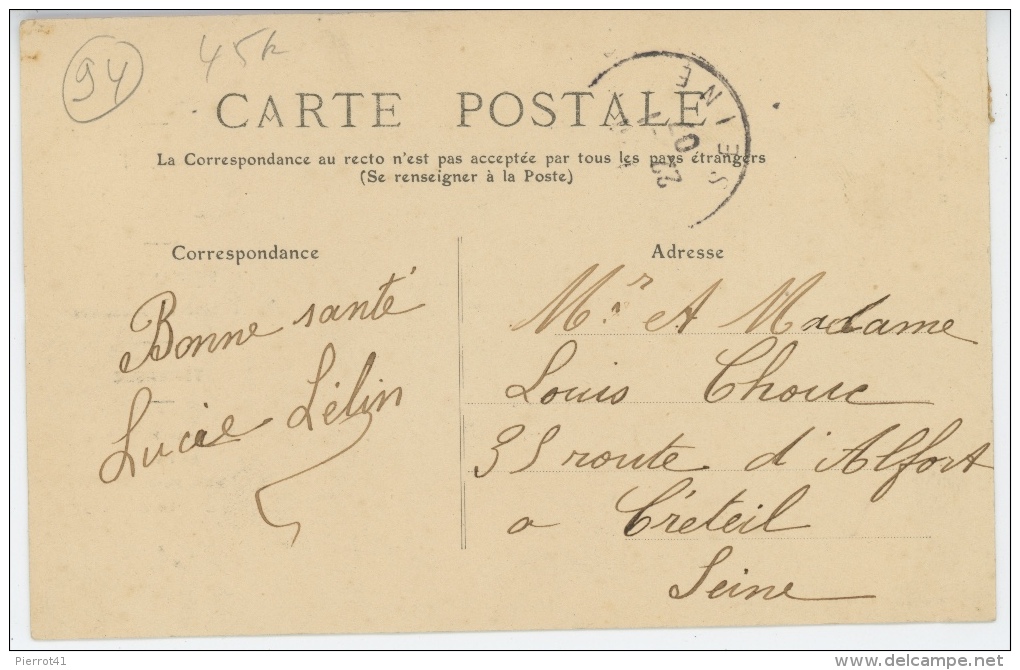 94
45k
CARTE POSTALE
La Correspondance au recto n'est pas acceptée par tous les pays étrangers
(Se renseigner à la Poste)
SEINE
22
07
Correspondance
Adresse
Bonne santé
Lucie Lélin
Mr et Madame
Louis Chouc
35 route d'Alfort
a Créteil
Seine
Pierrot41
www.delcampe.net